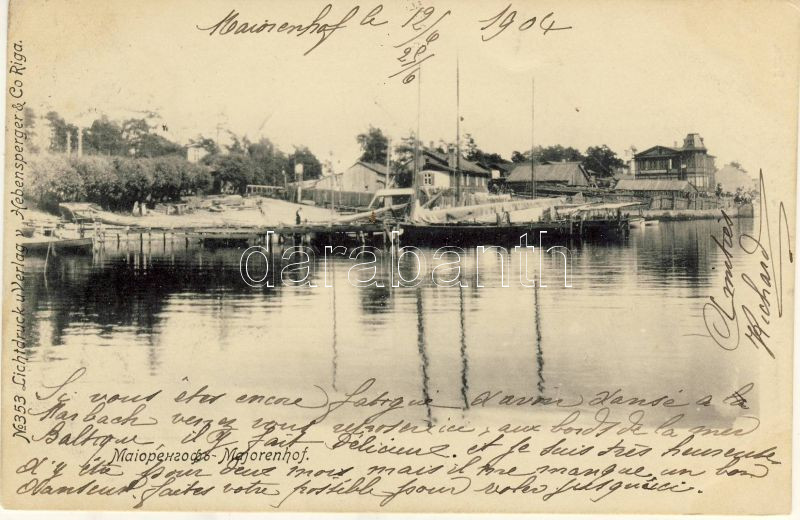 Majorenhof le 12/6 1904
25/6
№353 Lichtdruck u Verlag v. Hebensperger & Co Riga.
darabanth
Amitiés
Richard
Si vous êtes encore fatiguée d'avoir dansé à la
Marbach venez vous reposer ici, aux bords de la mer
Baltique, il y fait délicieux et je suis très heureuse
Маіоренгофъ - Majorenhof.
d'y être pour deux mois mais il me manque un bon
danseur. faites votre possible pour voler jusqu'ici.